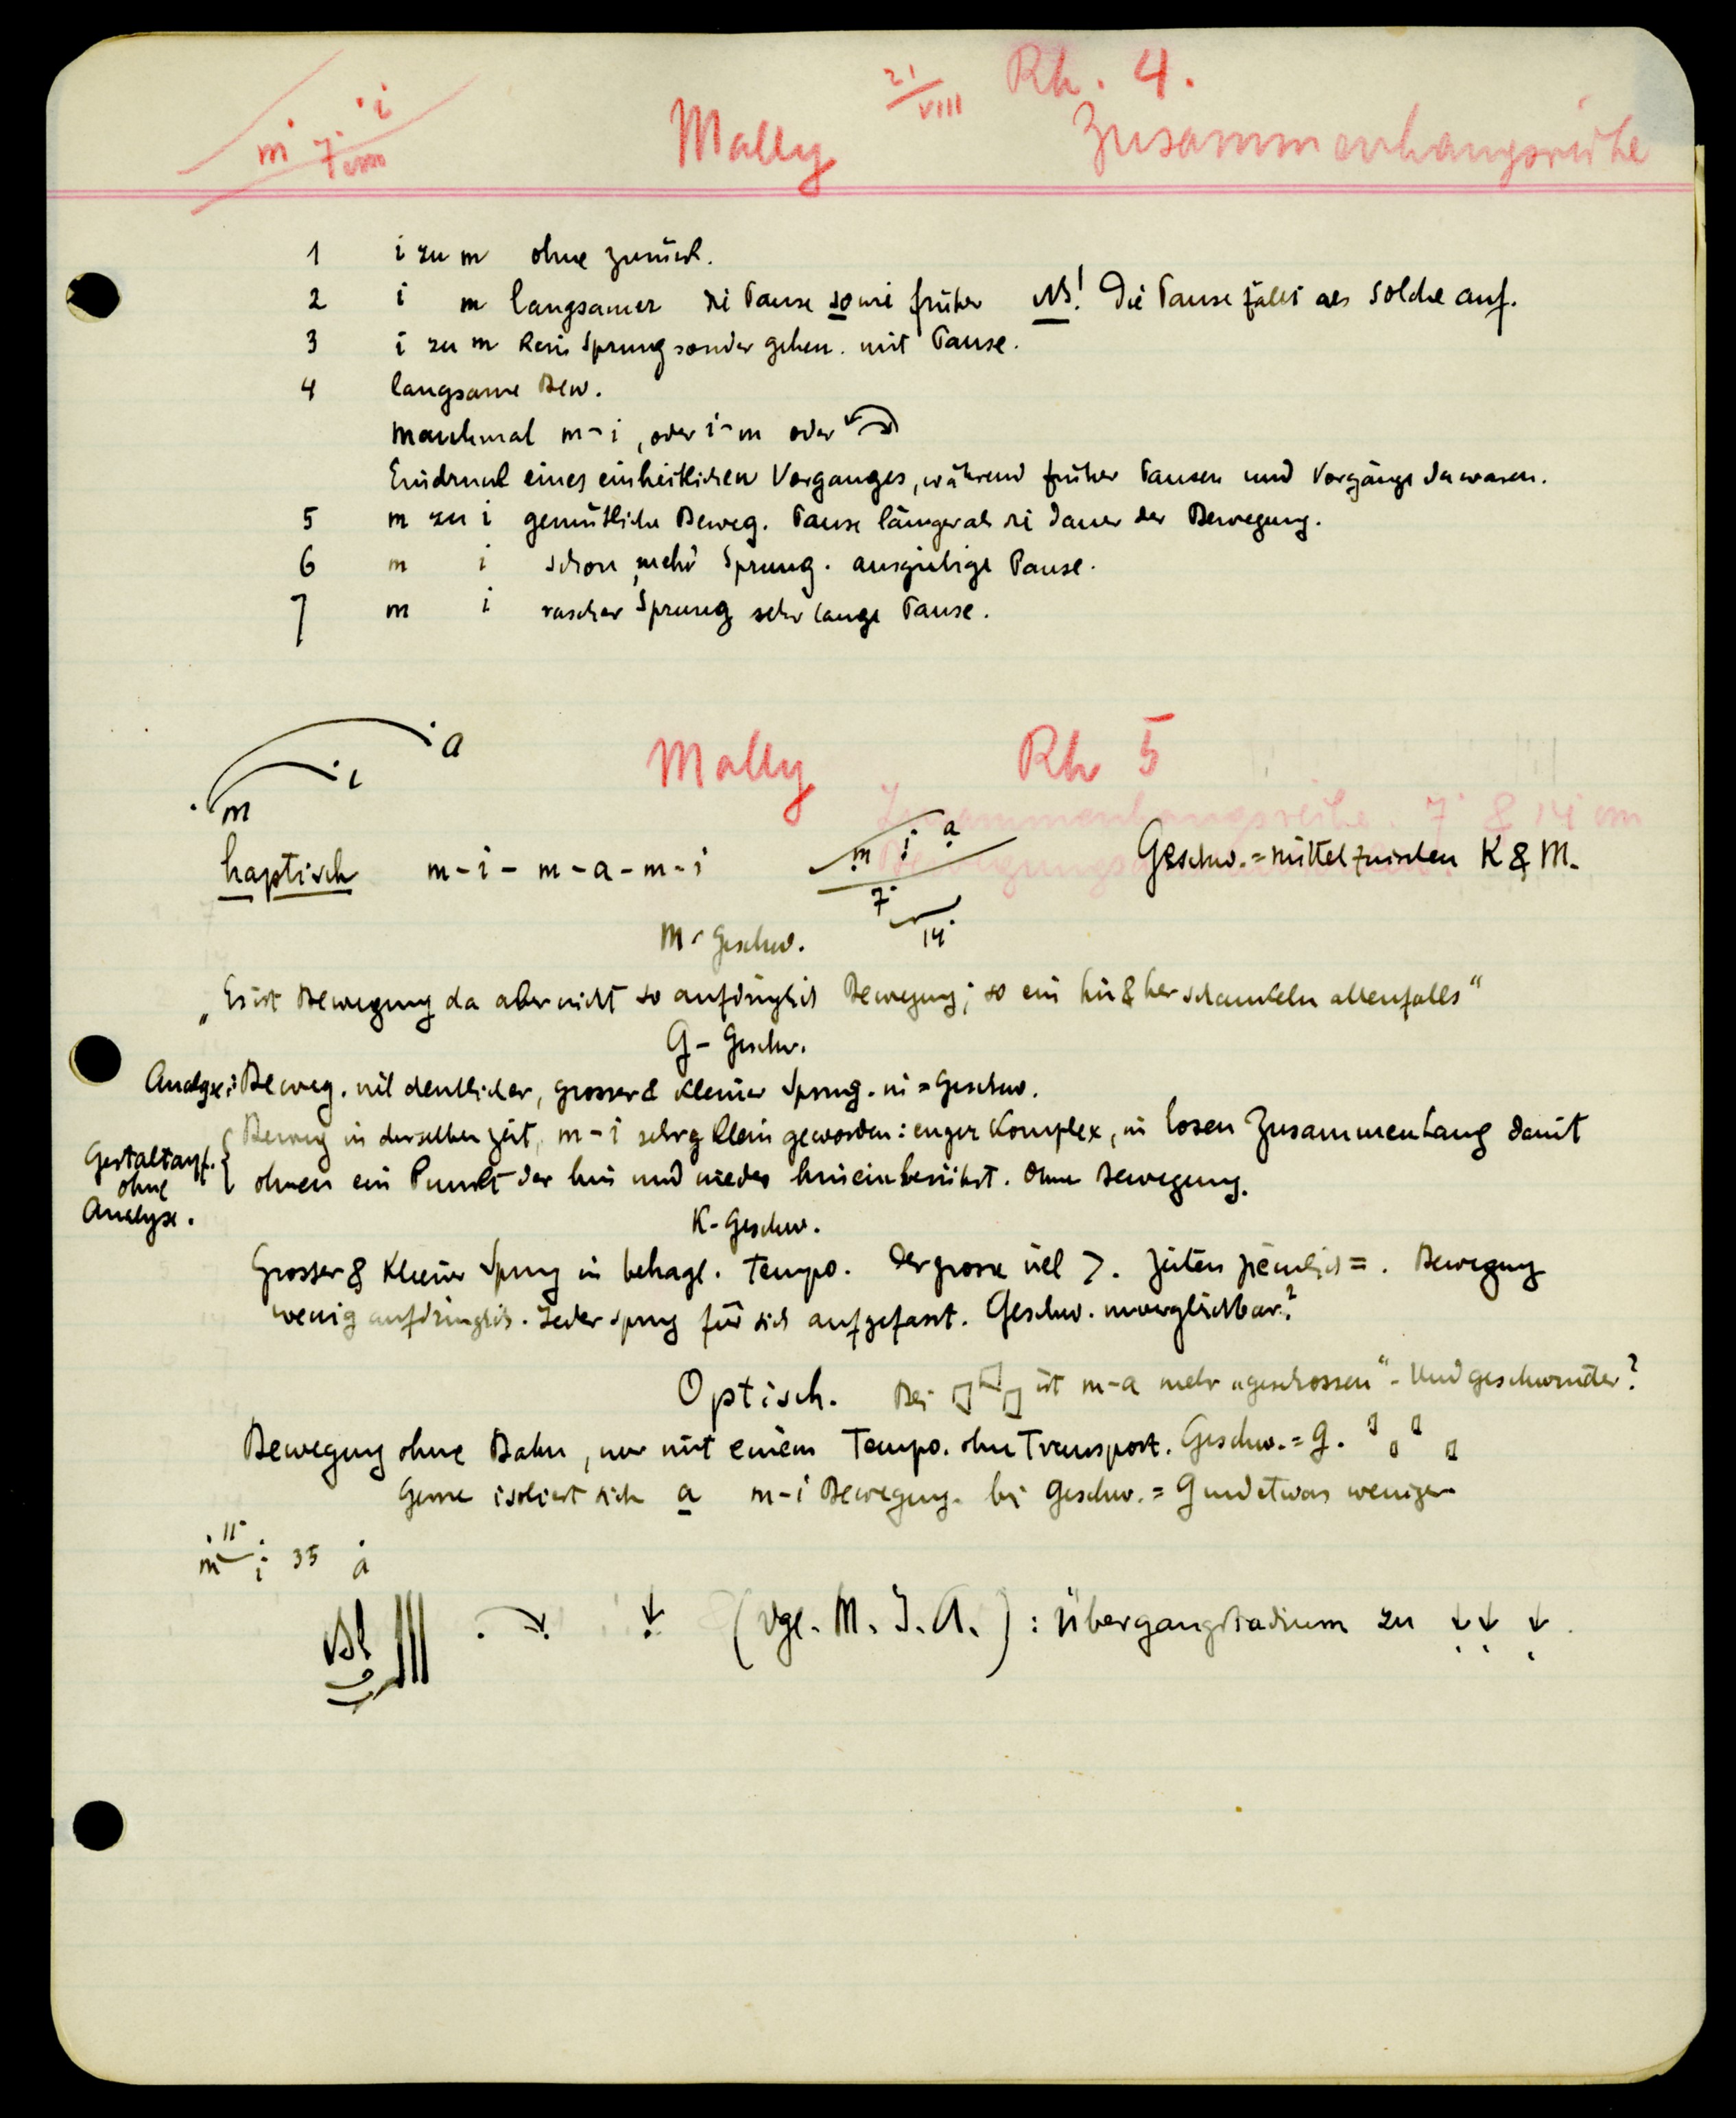 m i
7 cm
Mally
21/VIII
Rh. 4.
Zusammenhangsreihe
1 i zu m ohne zurück.
2 i m langsamer die Pause so wie früher NB! Die Pause fällt als solche auf.
3 i zu m kein Sprung sonder gehen. mit Pause.
4 langsame Bew.
Manchmal m-i, oder i-m oder
Eindruck eines einheitlichen Vorganges, während früher Pausen und Vorgänge da waren.
5 m zu i gemütliche Beweg. Pause länger als die Dauer der Bewegung.
6 m i schon mehr Sprung. ausgiebige Pause.
7 m i rascher Sprung sehr lange Pause.
m i a
Mally Rh 5
Zusammenhangsreihe. 7 & 14 cm
haptisch m-i-m-a-m-i
m i a
7
14
Geschw. = mittel zwischen K & M.
M-Geschw.
„Es ist Bewegung da aber nicht so aufdringlich Bewegung; so ein hin & her schaukeln allenfalls“
G-Geschw.
Analyse: Beweg. viel deutlicher, grosser & kleiner Sprung. in = Geschw.
Gestaltauff. ohne Analyse.
Beweg in derselben Zeit, m-i sehr klein geworden: enger Komplex, in losen Zusammenhang damit
oben ein Punkt der hin und wieder hinein berührt. Ohne Bewegung.
K-Geschw.
Grosser & Kleiner Sprung in behagl. Tempo. Der grosse viel >. Zeiten ziemlich =. Bewegung
wenig aufdringlich. Jeder Sprung für sich aufgefasst. Geschw. unvergleichbar?
Optisch. Bei ist m-a mehr „geschossen“. Und geschwinder?
Bewegung ohne Bahn, nur mit einem Tempo. ohne Transport. Geschw. = G.
Gerne isoliert sich a m-i Bewegung. bei Geschw. = G und etwas weniger
m 11 i 35 a
NB!!! (Vgl. M. J. A.): Übergangsstadium zu ↓↓ ↓